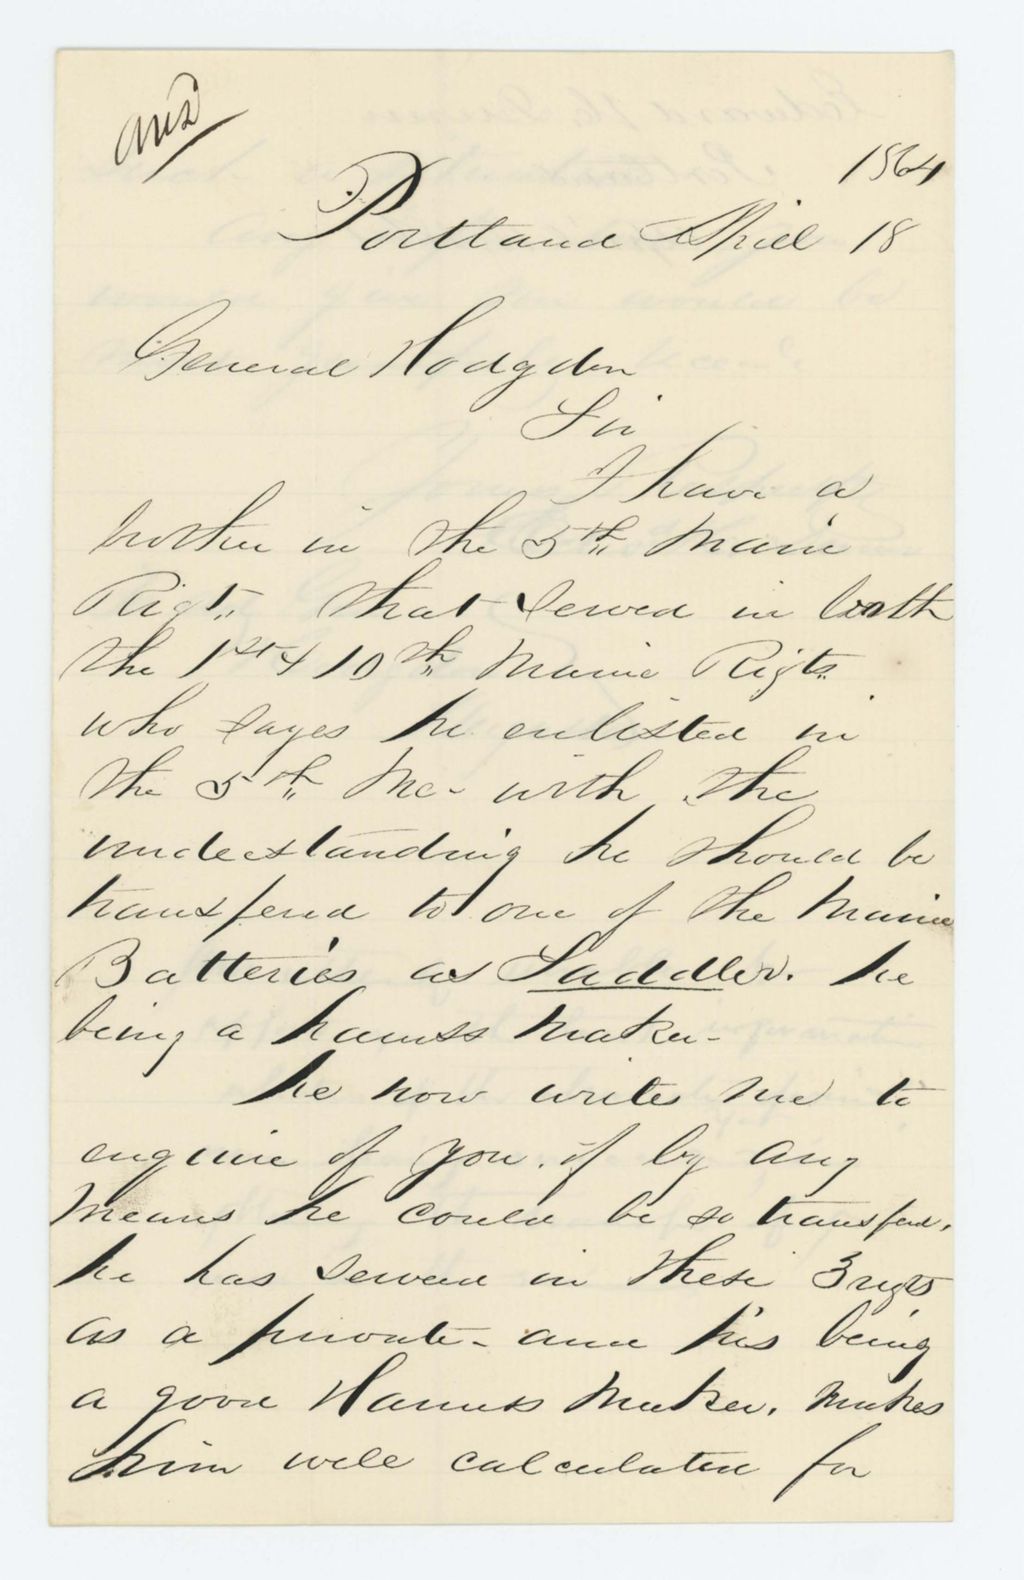 ansd
1864
Portland April 18
General Hodgdon
Sir
I have a
brother in the 5th Maine
Rigt. that served in both
the 1st & 10th Maine Rigts.
who sayes he enlisted in
the 5th Me- with the
understanding he should be
transfered to one of the Maine
Batteries as Saddler. he
being a harness maker-
he now writes me to
enquire of you. if by any
means he could be so transferd.
he has served in these 3 rigts
as a private- and his being
a good Harness Maker. makes
him well calculated for